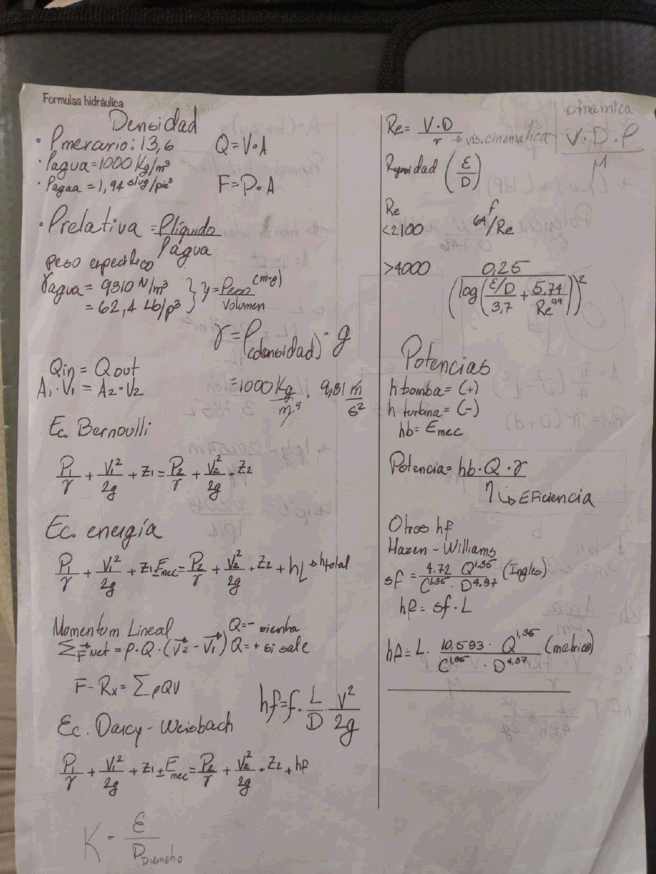 Formulas hidráulica
Densidad
· ρmercurio: 13,6
· ρagua = 1000 Kg/m³
· ρagua = 1,94 slug/pie³
Q = V·A
F = P·A
· ρrelativa = ρliquido / ρagua
peso especifico
γagua = 9810 N/m³
= 62,4 Lb/p³
} γ = Peso (m·g) / Volumen
γ = ρ(densidad) · g
= 1000 Kg/m³ · 9,81 m/s²
Qin = Qout
A₁·V₁ = A₂·V₂
Ec. Bernoulli
P₁/γ + V₁²/2g + Z₁ = P₂/γ + V₂²/2g + Z₂
Ec. energía
P₁/γ + V₁²/2g + Z₁ ± Emec = P₂/γ + V₂²/2g + Z₂ + hL → htotal
Momentum Lineal
Q = - si entra
ΣF net = ρ·Q·(V₂ - V₁) Q = + si sale
F - Rx = Σ ρQV
hf = f · L/D · V²/2g
Ec. Darcy - Weisbach
P₁/γ + V₁²/2g + Z₁ ± Emec = P₂/γ + V₂²/2g + Z₂ + hf
K = ε /
Re = V·D / r → vis. cinematica
Dinámica
V·D·ρ / μ
Rugosidad (ε/D)
Re f
<2100 64/Re
>4000 0,25 / (log(ε/D / 3,7 + 5,74 / Re^0,9))²
Potencias
h bomba = (+)
h turbina = (-)
hb = Emec
Potencia = hb·Q·γ / η ↳ Eficiencia
Otros hf
Hazen - Williams
sf = 4.72 Q^1,85 / C^1,85 · D^4,87 (Ingles)
hf = sf · L
hf = L · 10,593 · Q^1,85 / C^1,85 · D^4,87 (metrico)